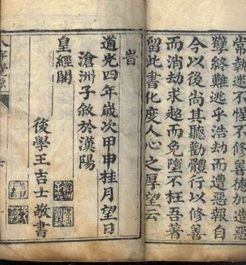 孽終難逃乎浩劫而遭惡報自
今以後尚其聽勸體行以修善
而消劫求超而免墮不枉吾著
留此書化度人心之厚望云
旹
道光四年歲次甲申桂月望日
滄洲子敘於漢陽
皇經閣
後學王吉士敬書